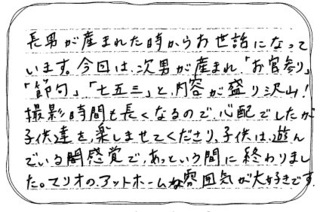 長男が産まれた時からお世話になって
います。今回は、次男が産まれ「お宮参り」
「節句」「七五三」と、内容が盛り沢山!
撮影時間も長くなるので、心配でしたが
子供達を、楽しませてくださり、子供は、遊ん
でいる間感覚で、あっという間に終わりまし
た。マリオの、アットホームな雰囲気が大好きです。